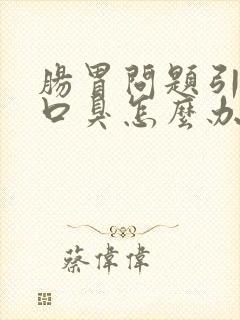 腸胃問題引
口臭怎麼办
蔡偉偉